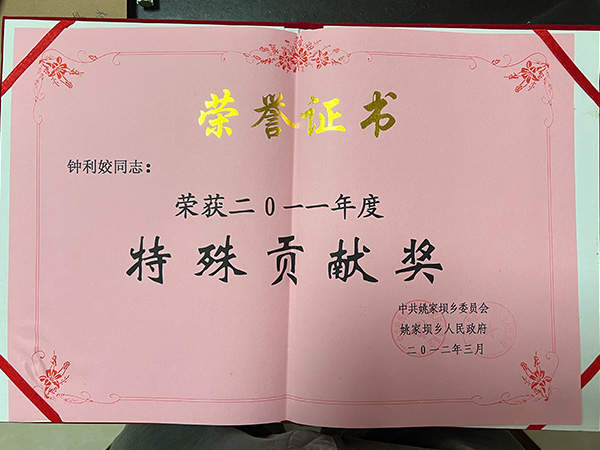 荣誉证书
钟利姣同志：
荣获二0一一年度
特殊贡献奖
中共姚家坝乡委员会
姚家坝乡人民政府
二0一二年三月